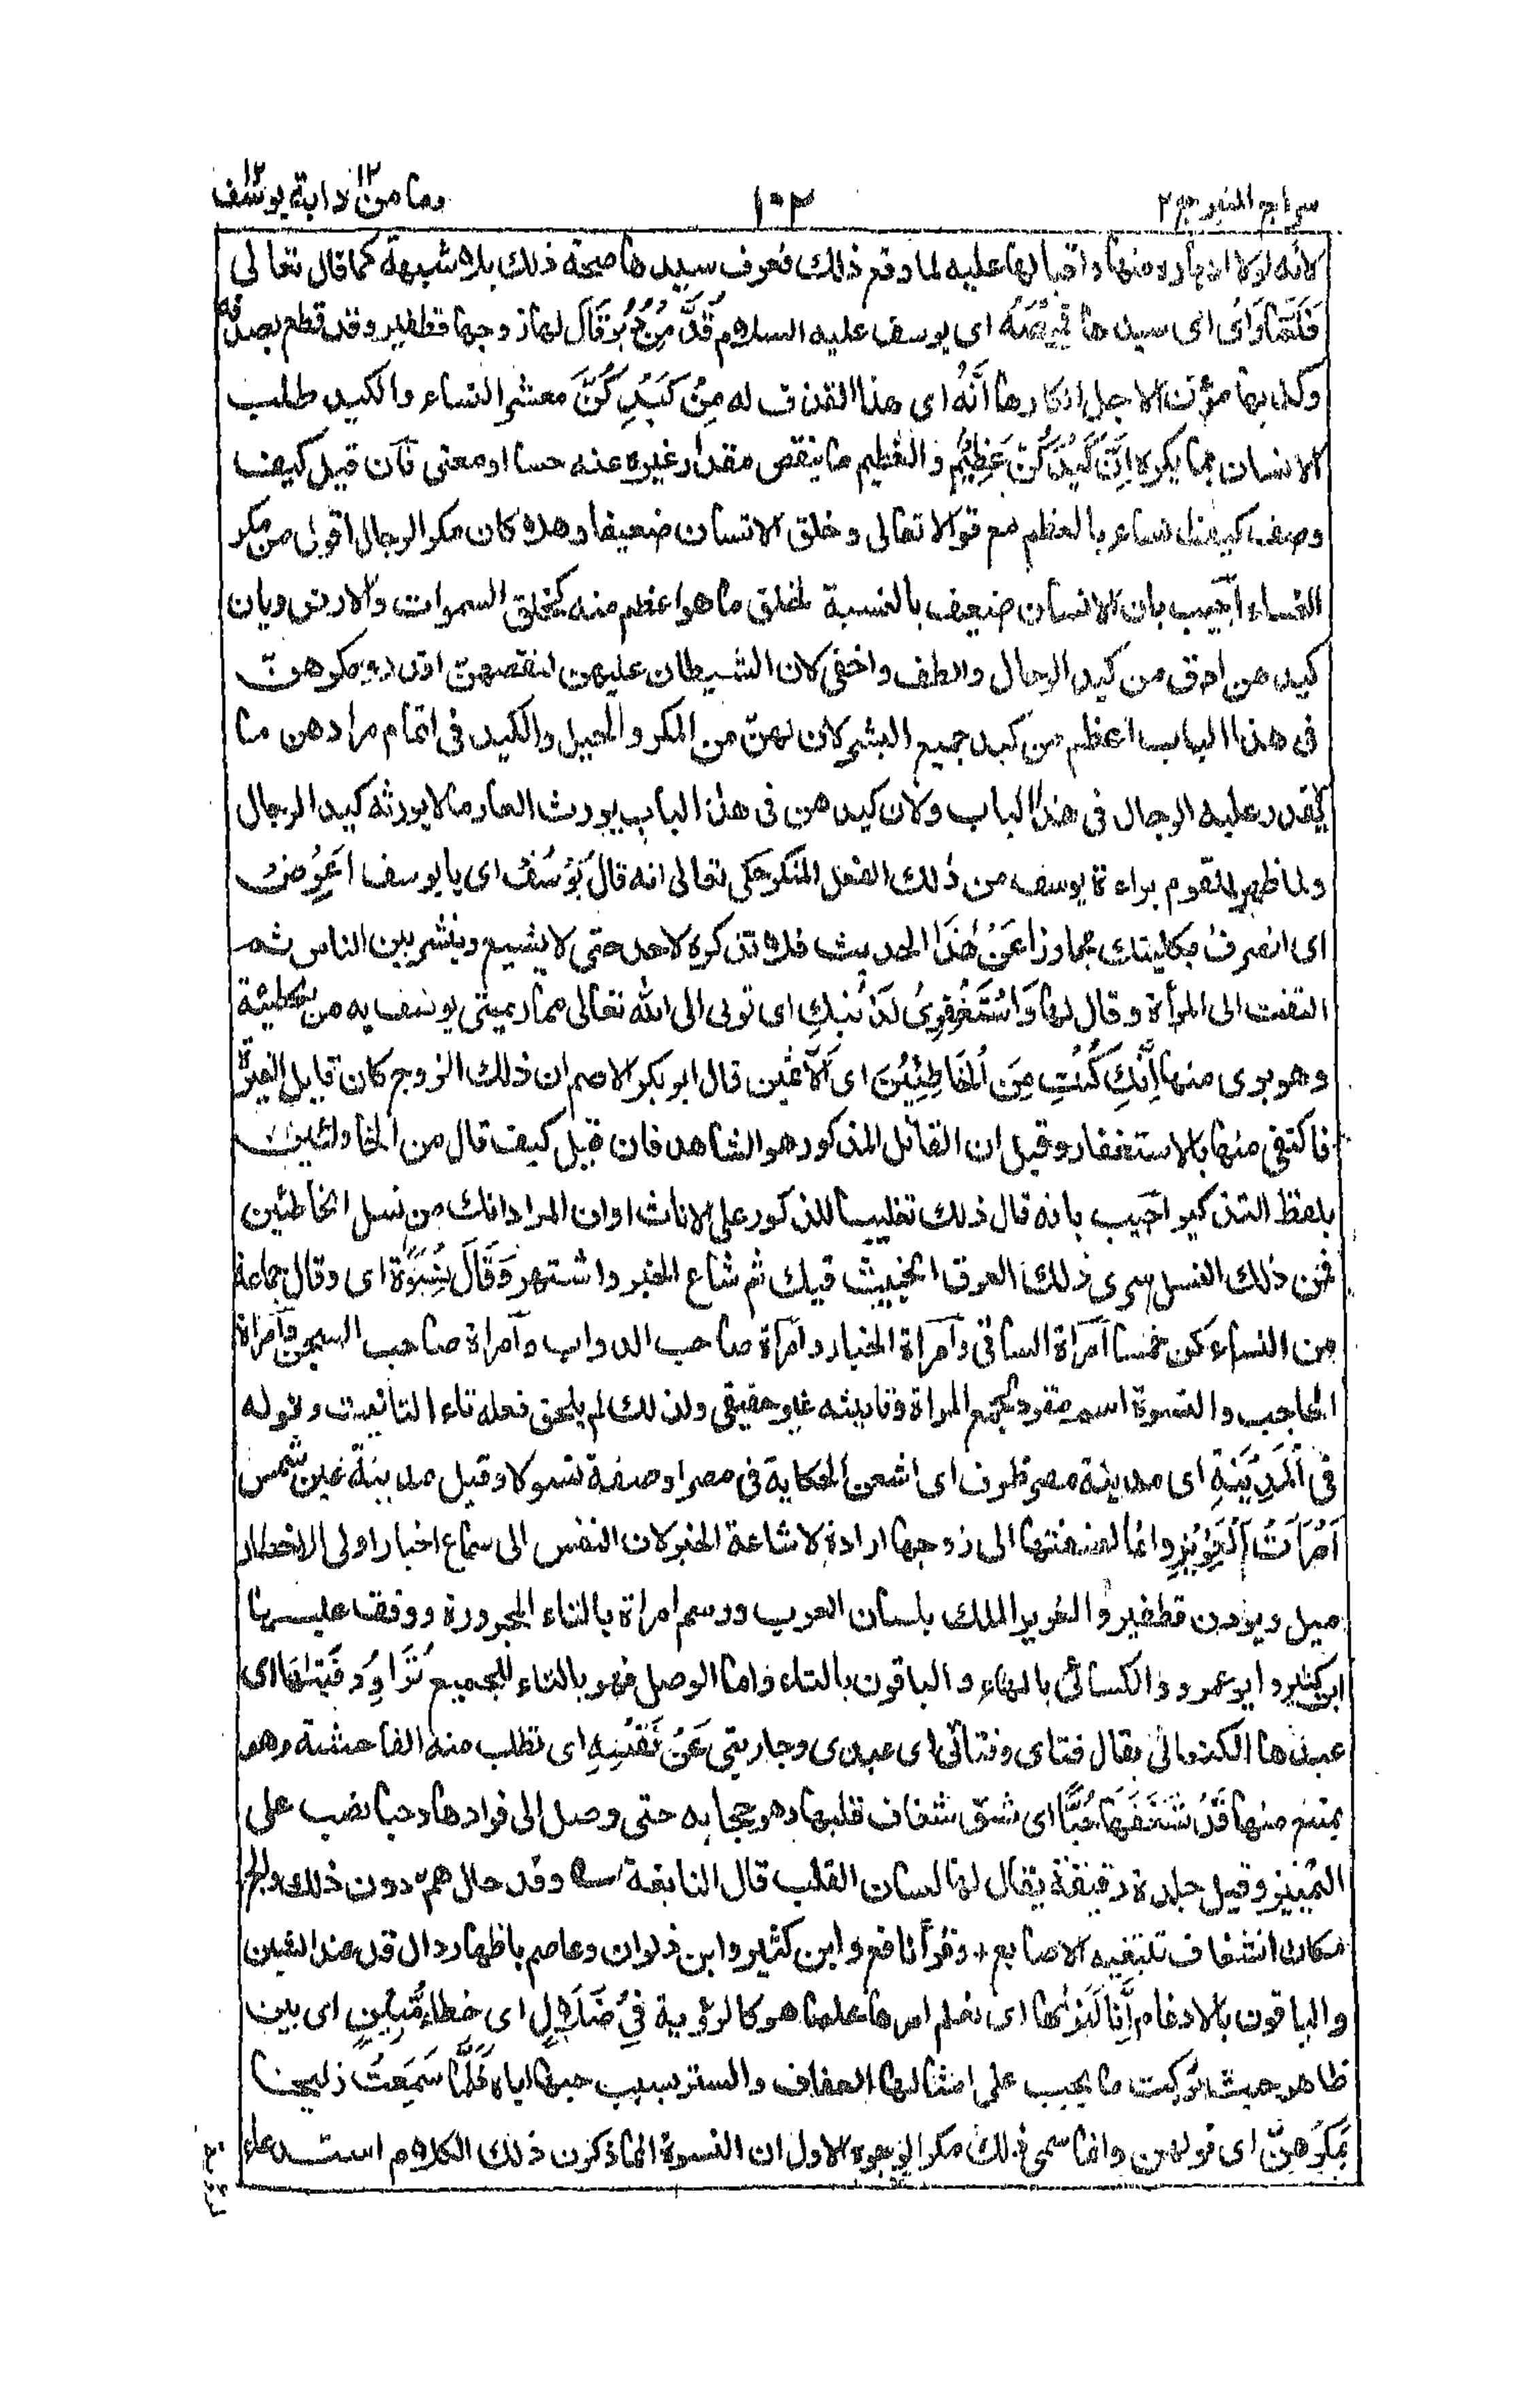 سراج المنير ج ٢ ١٠٣ وما من دابة ١٢ يوسف ١٢
لانه لولا ادباره منها واقبالها عليه لما وقع ذلك فعرف سيدها صحة ذلك بلا شبهة كما قال تعالى
فَلَمَّا رَاٰى اى سيدها قَمِيْصَهٗ اى يوسف عليه السلام قُدَّ مِنْ دُبُرٍ قَالَ لها زوجها قطفير وقد قطع بصدقه
وكذبها مؤكدا لاجل انكارها اِنَّهٗ اى هذا القذف له مِنْ كَيْدِكُنَّ معشر النساء والكيد طلب
الانسان بما يكره اِنَّ كَيْدَكُنَّ عَظِيْمٌ والعظيم ما ينقص مقدار غيره عنه حسا او معنى فان قيل كيف
وصف كيد النساء بالعظم مع قوله تعالى وخلق الانسان ضعيفا وهلا كان مكر الرجال اقوى من مكر
النساء اجيب بان الانسان ضعيف بالنسبة لخلق ما هو اعظم منه كخلق السموات والارض وبان
كيدهن ادق من كيد الرجال والطف واخفى لان الشيطان عليهن لنقصهن اقدر ومكرهن
فى هذا الباب اعظم من كيد جميع البشر لان لهن من المكر والحيل والكيد فى اتمام مرادهن ما
لا يقدر عليه الرجال فى هذا الباب ولان كيدهن فى هذا الباب يورث العار ما لا يورثه كيد الرجال
ولما ظهر للقوم براءة يوسف من ذلك الفعل المنكر حكى تعالى انه قال يُوْسُفُ اى يا يوسف اَعْرِضْ
اى انصرف بكليتك مجاوزا عَنْ هٰذَا الحديث فلا تذكره لاحد حتى لا يشيع وينشر بين الناس ثم
التفت الى المرأة وقال لها وَاسْتَغْفِرِىْ لِذَنْبِكِ اى توبى الى الله تعالى مما رميتى يوسف به من الخطيئة
وهو برى منها اِنَّكِ كُنْتِ مِنَ الْخَاطِئِيْنَ اى الآثمين قال ابو بكر الاصم ان ذلك الزوج كان قليل الغيرة
فاكتفى منها بالاستغفار وقيل ان القائل المذكور هو الشاهد فان قيل كيف قال من الخاطئين
بلفظ التذكير اجيب بانه قال ذلك تغليبا للذكور على الاناث او ان المراد انك من نسل الخاطئين
فمن ذلك النسل سرى ذلك العرق الخبيث فيك ثم شاع الخبر واشتهر وَقَالَ نِسْوَةٌ اى وقال جماعة
من النساء كن خمسا امرأة الساقى وامرأة الخباز وامرأة صاحب الدواب وامراة صاحب السجن وامراة
الحاجب والنسوة اسم مفرد لجمع المراة وتانيثه غير حقيقى ولذلك لم يلحق فعله تاء التانيث وقوله
فِى الْمَدِيْنَةِ اى مدينة مصر ظرف اى اشعن الحكاية فى مصر او صفة نسوة وقيل مدينة عين شمس
اِمْرَاَتُ الْعَزِيْزِ وانما اضفنها الى زوجها ارادة لاشاعة الخبر لان النفس الى سماع اخبار اولى الاخطار
اميل ويردن قطفير والعزيز الملك بلسان العرب ورسم امراة بالتاء المجرورة ووقف عليها
ابن كثير وابو عمرو والكسائى بالهاء والباقون بالتاء واما الوصل فهو بالتاء للجميع تُرَاوِدُ فَتٰىهَا اى
عبدها الكنعانى يقال فتاى وفتاتى اى عبدى وجاريتى عَنْ نَّفْسِهٖ اى تطلب منه الفاحشة وهو
يمتنع منها قَدْ شَغَفَهَا حُبًّا اى شق شغاف قلبها وهو حجابه حتى وصل الى فوادها وحبا نصب على
التمييز وقيل جلدة رقيقة يقال لها لسان القلب قال النابغة وقد حال هم دون ذلك والج
مكان الشغاف تبتغيه الاصابع ٭ وقرأ نافع وابن كثير وابن ذكوان وعاصم باظهار دال قد عند الشين
والباقون بالادغام اِنَّا لَنَرٰىهَا اى نعلم امرها علما هو كالرؤية فِىْ ضَلَالٍ اى خطاء مُّبِيْنٍ اى بين
ظاهر حيث تركت ما يجب على امثالها العفاف والستر بسبب حبها اياه فَلَمَّا سَمِعَتْ زليخا
بِمَكْرِهِنَّ اى قولهن وانما سمى ذلك مكرا لوجوه الاول ان النسوة انما ذكرن ذلك الكلام استدعاء